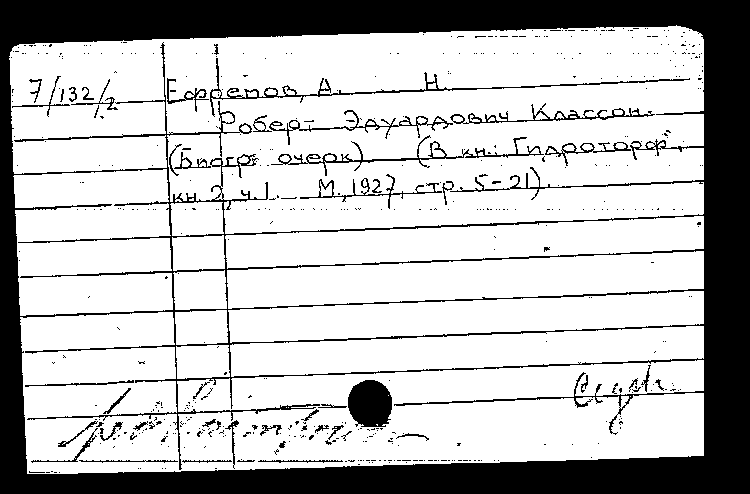 7/132/2 Ефремов, А. Н.
Роберт Эдуардович Классон.
(Биогр. очерк) (В кн.: Гидроторф",
кн. 2, ч. 1. М., 1927, стр. 5-21).